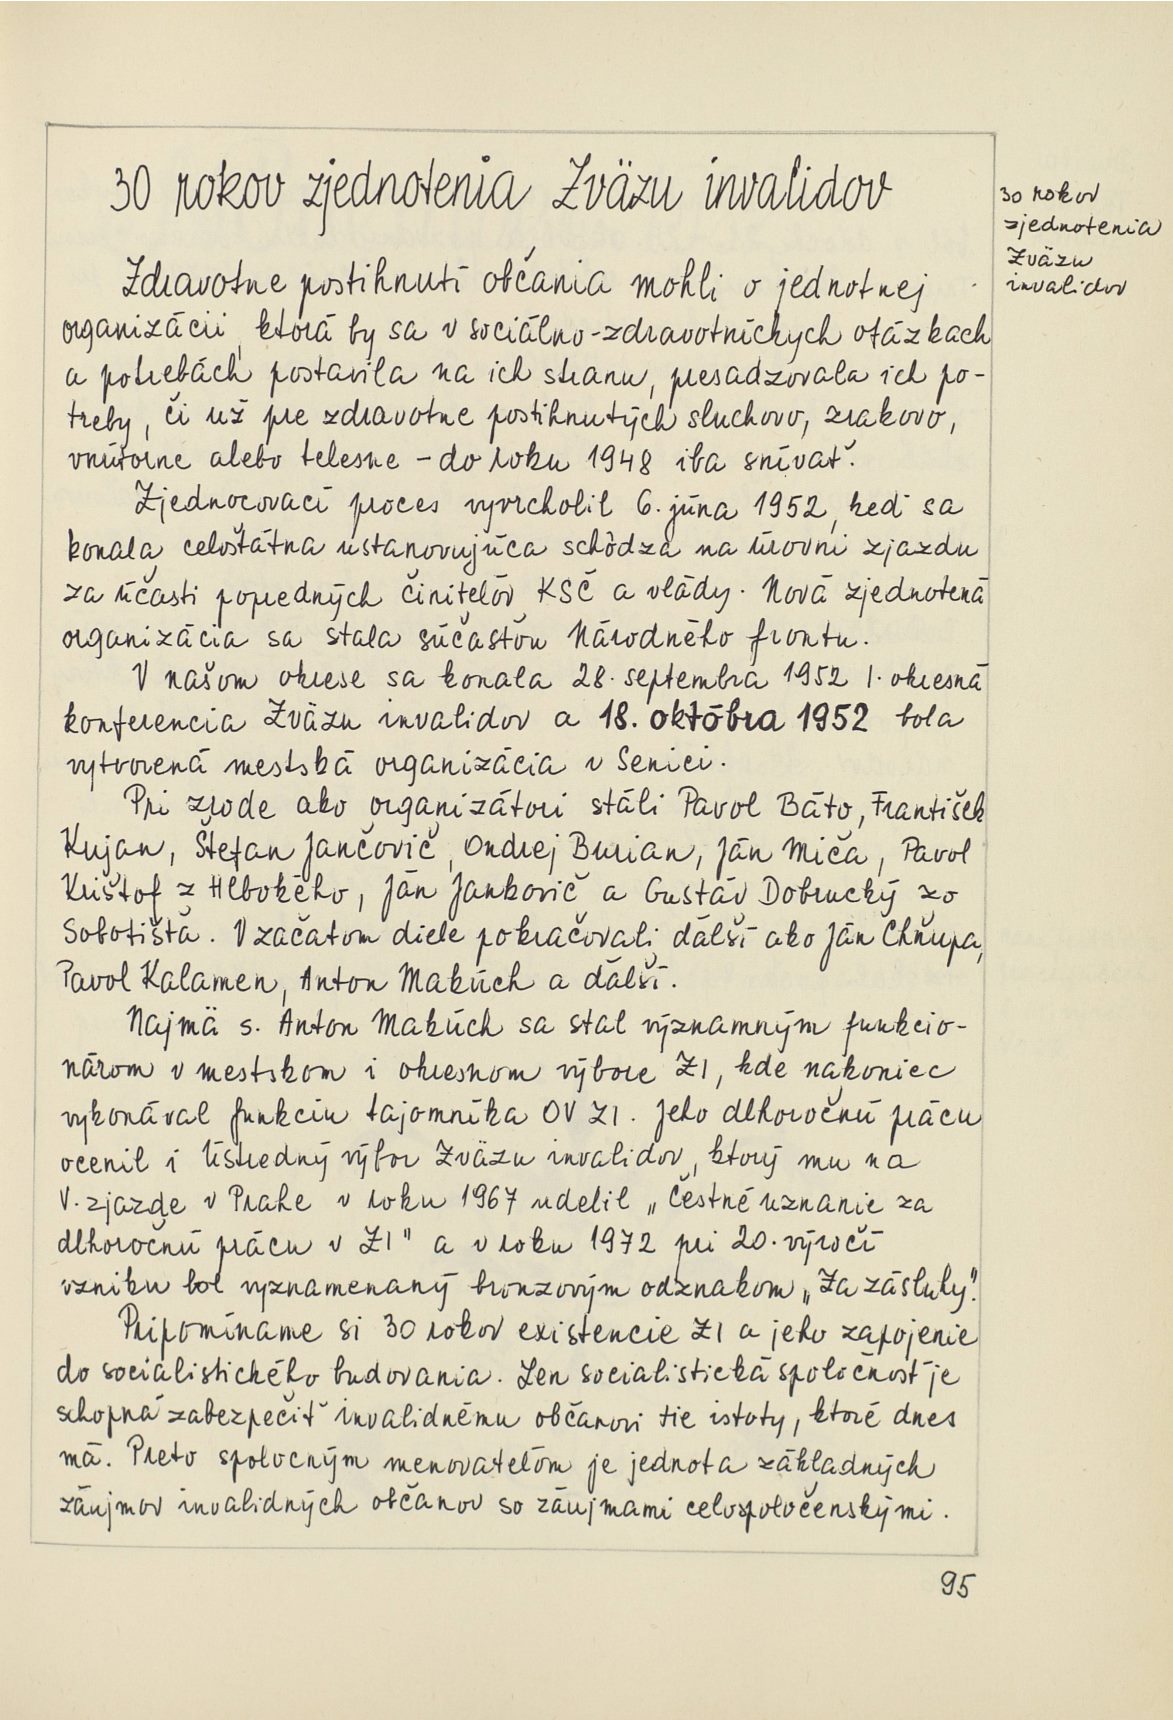 30 rokov zjednotenia Zväzu invalidov
30 rokov
zjednotenia
Zväzu
invalidov
Zdravotne postihnutí občania mohli o jednotnej
organizácii, ktorá by sa v sociálno-zdravotníckych otázkach
a potrebách postavila na ich stranu, presadzovala ich po-
treby, či už pre zdravotne postihnutých sluchovo, zrakovo,
vnútorne alebo telesne - do roku 1948 iba snívať.
Zjednocovací proces vyvrcholil 6. júna 1952, keď sa
konala celoštátna ustanovujúca schôdza na úrovni zjazdu
za účasti popredných činiteľov KSČ a vlády. Nová zjednotená
organizácia sa stala súčasťou Národného frontu.
V našom okrese sa konala 28. septembra 1952 I. okresná
konferencia Zväzu invalidov a 18. októbra 1952 bola
vytvorená mestská organizácia v Senici.
Pri zrode ako organizátori stáli Pavol Báto, František
Kujan, Štefan Jančovič, Ondrej Burian, Ján Miča, Pavol
Krištof z Hlbokého, Ján Jankovič a Gustáv Dobrucký zo
Sobotišťa. V začatom diele pokračovali ďalší ako Ján Chňupa,
Pavol Kalamen, Anton Makúch a ďalší.
Najmä s. Anton Makúch sa stal významným funkcio-
nárom v mestskom i okresnom výbore ZI, kde nakoniec
vykonával funkciu tajomníka OV ZI. Jeho dlhoročnú prácu
ocenil i Ústredný výbor Zväzu invalidov, ktorý mu na
V. zjazde v Prahe v roku 1967 udelil „Čestné uznanie za
dlhoročnú prácu v ZI" a v roku 1972 pri 20. výročí
vzniku bol vyznamenaný bronzovým odznakom „Za zásluhy".
Pripomíname si 30 rokov existencie ZI a jeho zapojenie
do socialistického budovania. Len socialistická spoločnosť je
schopná zabezpečiť invalidnému občanovi tie istoty, ktoré dnes
má. Preto spoločným menovateľom je jednota základných
záujmov invalidných občanov so záujmami celospoločenskými.
95